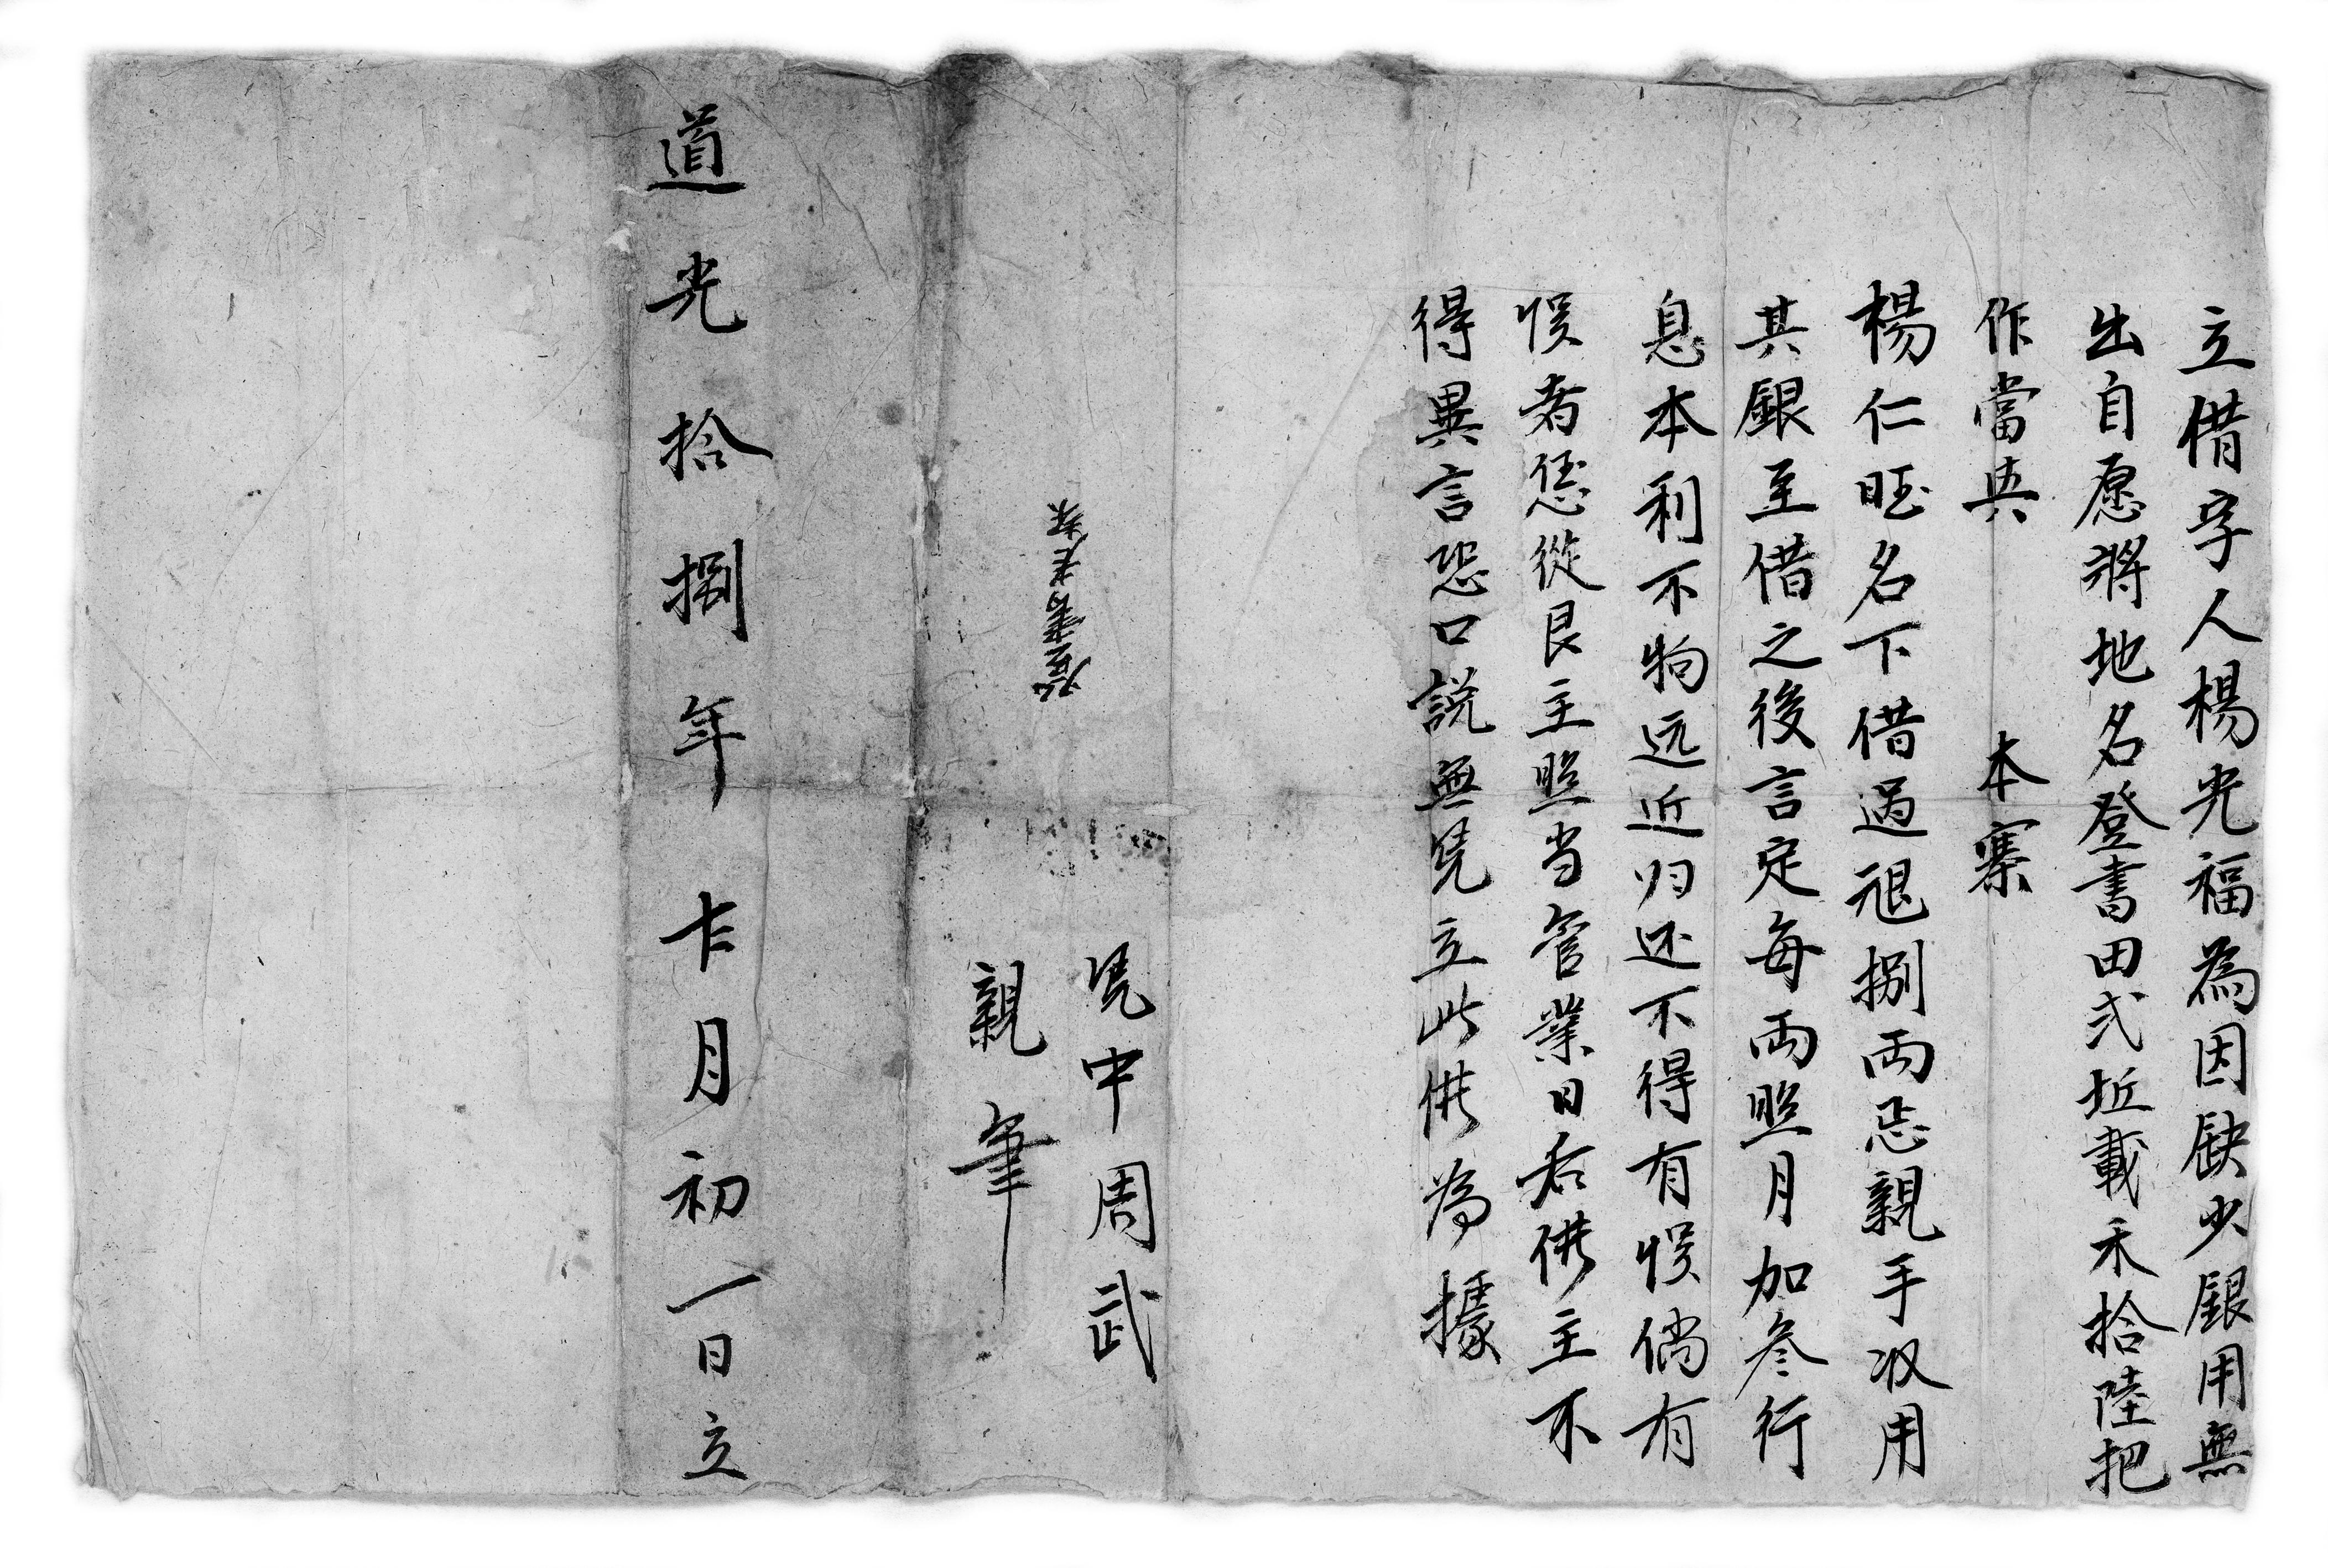 立借字人楊光福為因缺少銀用無
出自愿將地名登書田弍坵載禾拾陸把
作當與 本寨
楊仁旺名下借過艮捌両忌親手収用
其銀至借之後言定每両照月加叁行
息本利不拘远近归还不得有悮倘有
悮者恁從艮主照当管業日后借主不
得異言恐口説無凴立此借為據
凴中周武
親筆
道光拾捌年
月初一日立